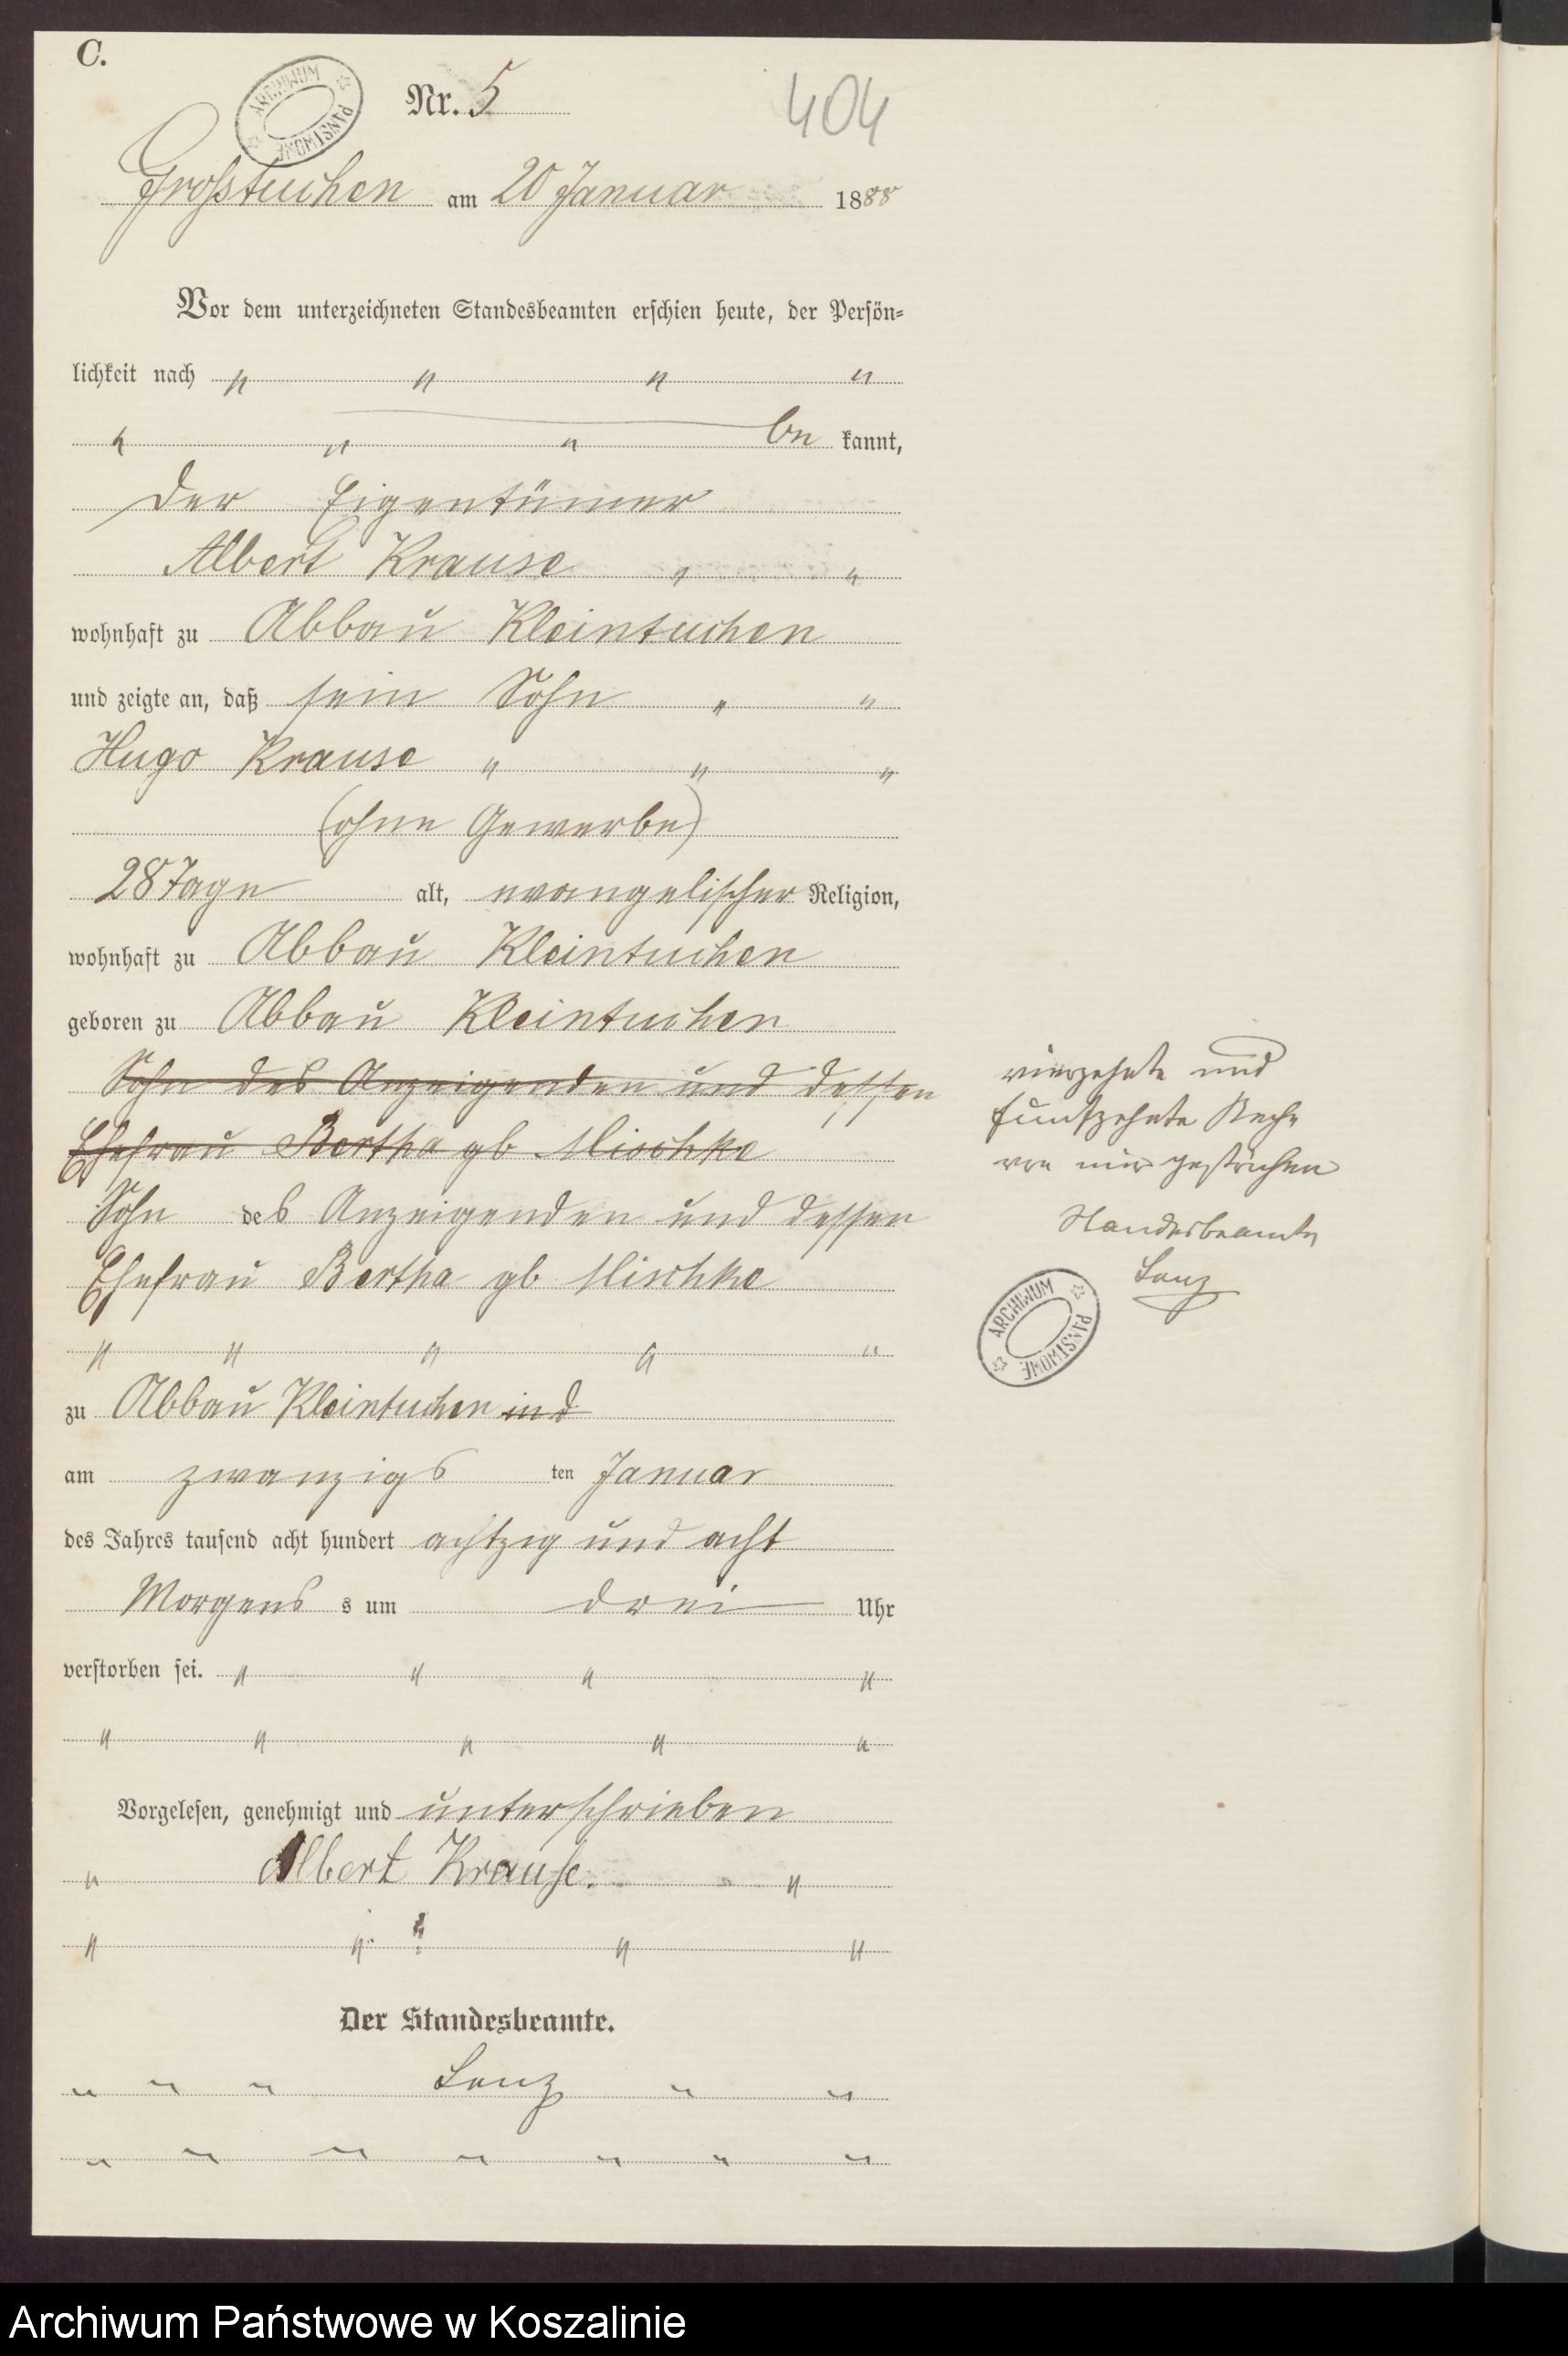 C.
ARCHIWUM PAŃSTWOWE
Nr. 5
404
Großtuchen am 20 Januar 1888
Vor dem unterzeichneten Standesbeamten erschien heute, der Persön-
lichkeit nach " " " "
" " " be kannt,
der Eigentümer
Albert Krause " "
wohnhaft zu Abbau Kleintuchen
und zeigte an, daß sein Sohn " "
Hugo Krause " " "
(ohne Gewerbe)
28 Tage alt, evangelischer Religion,
wohnhaft zu Abbau Kleintuchen
geboren zu Abbau Kleintuchen
Sohn des Anzeigenden und dessen
Ehefrau Bertha gb Mischke
Sohn des Anzeigenden und dessen
Ehefrau Bertha gb Mischke
" " " " "
zu Abbau Kleintuchen ind
am zwanzigs ten Januar
des Jahres tausend acht hundert achtzig und acht
Morgens s um drei Uhr
verstorben sei. " " " "
" " " " "
Vorgelesen, genehmigt und unterschrieben
" Albert Krause. "
" " " " "
Der Standesbeamte.
" " " Lenz " "
" " " " " " "
vierzehnte und
funfzehnte
von mir gestrichen
Standesbeamte
Lenz
ARCHIWUM PAŃSTWOWE
Archiwum Państwowe w Koszalinie